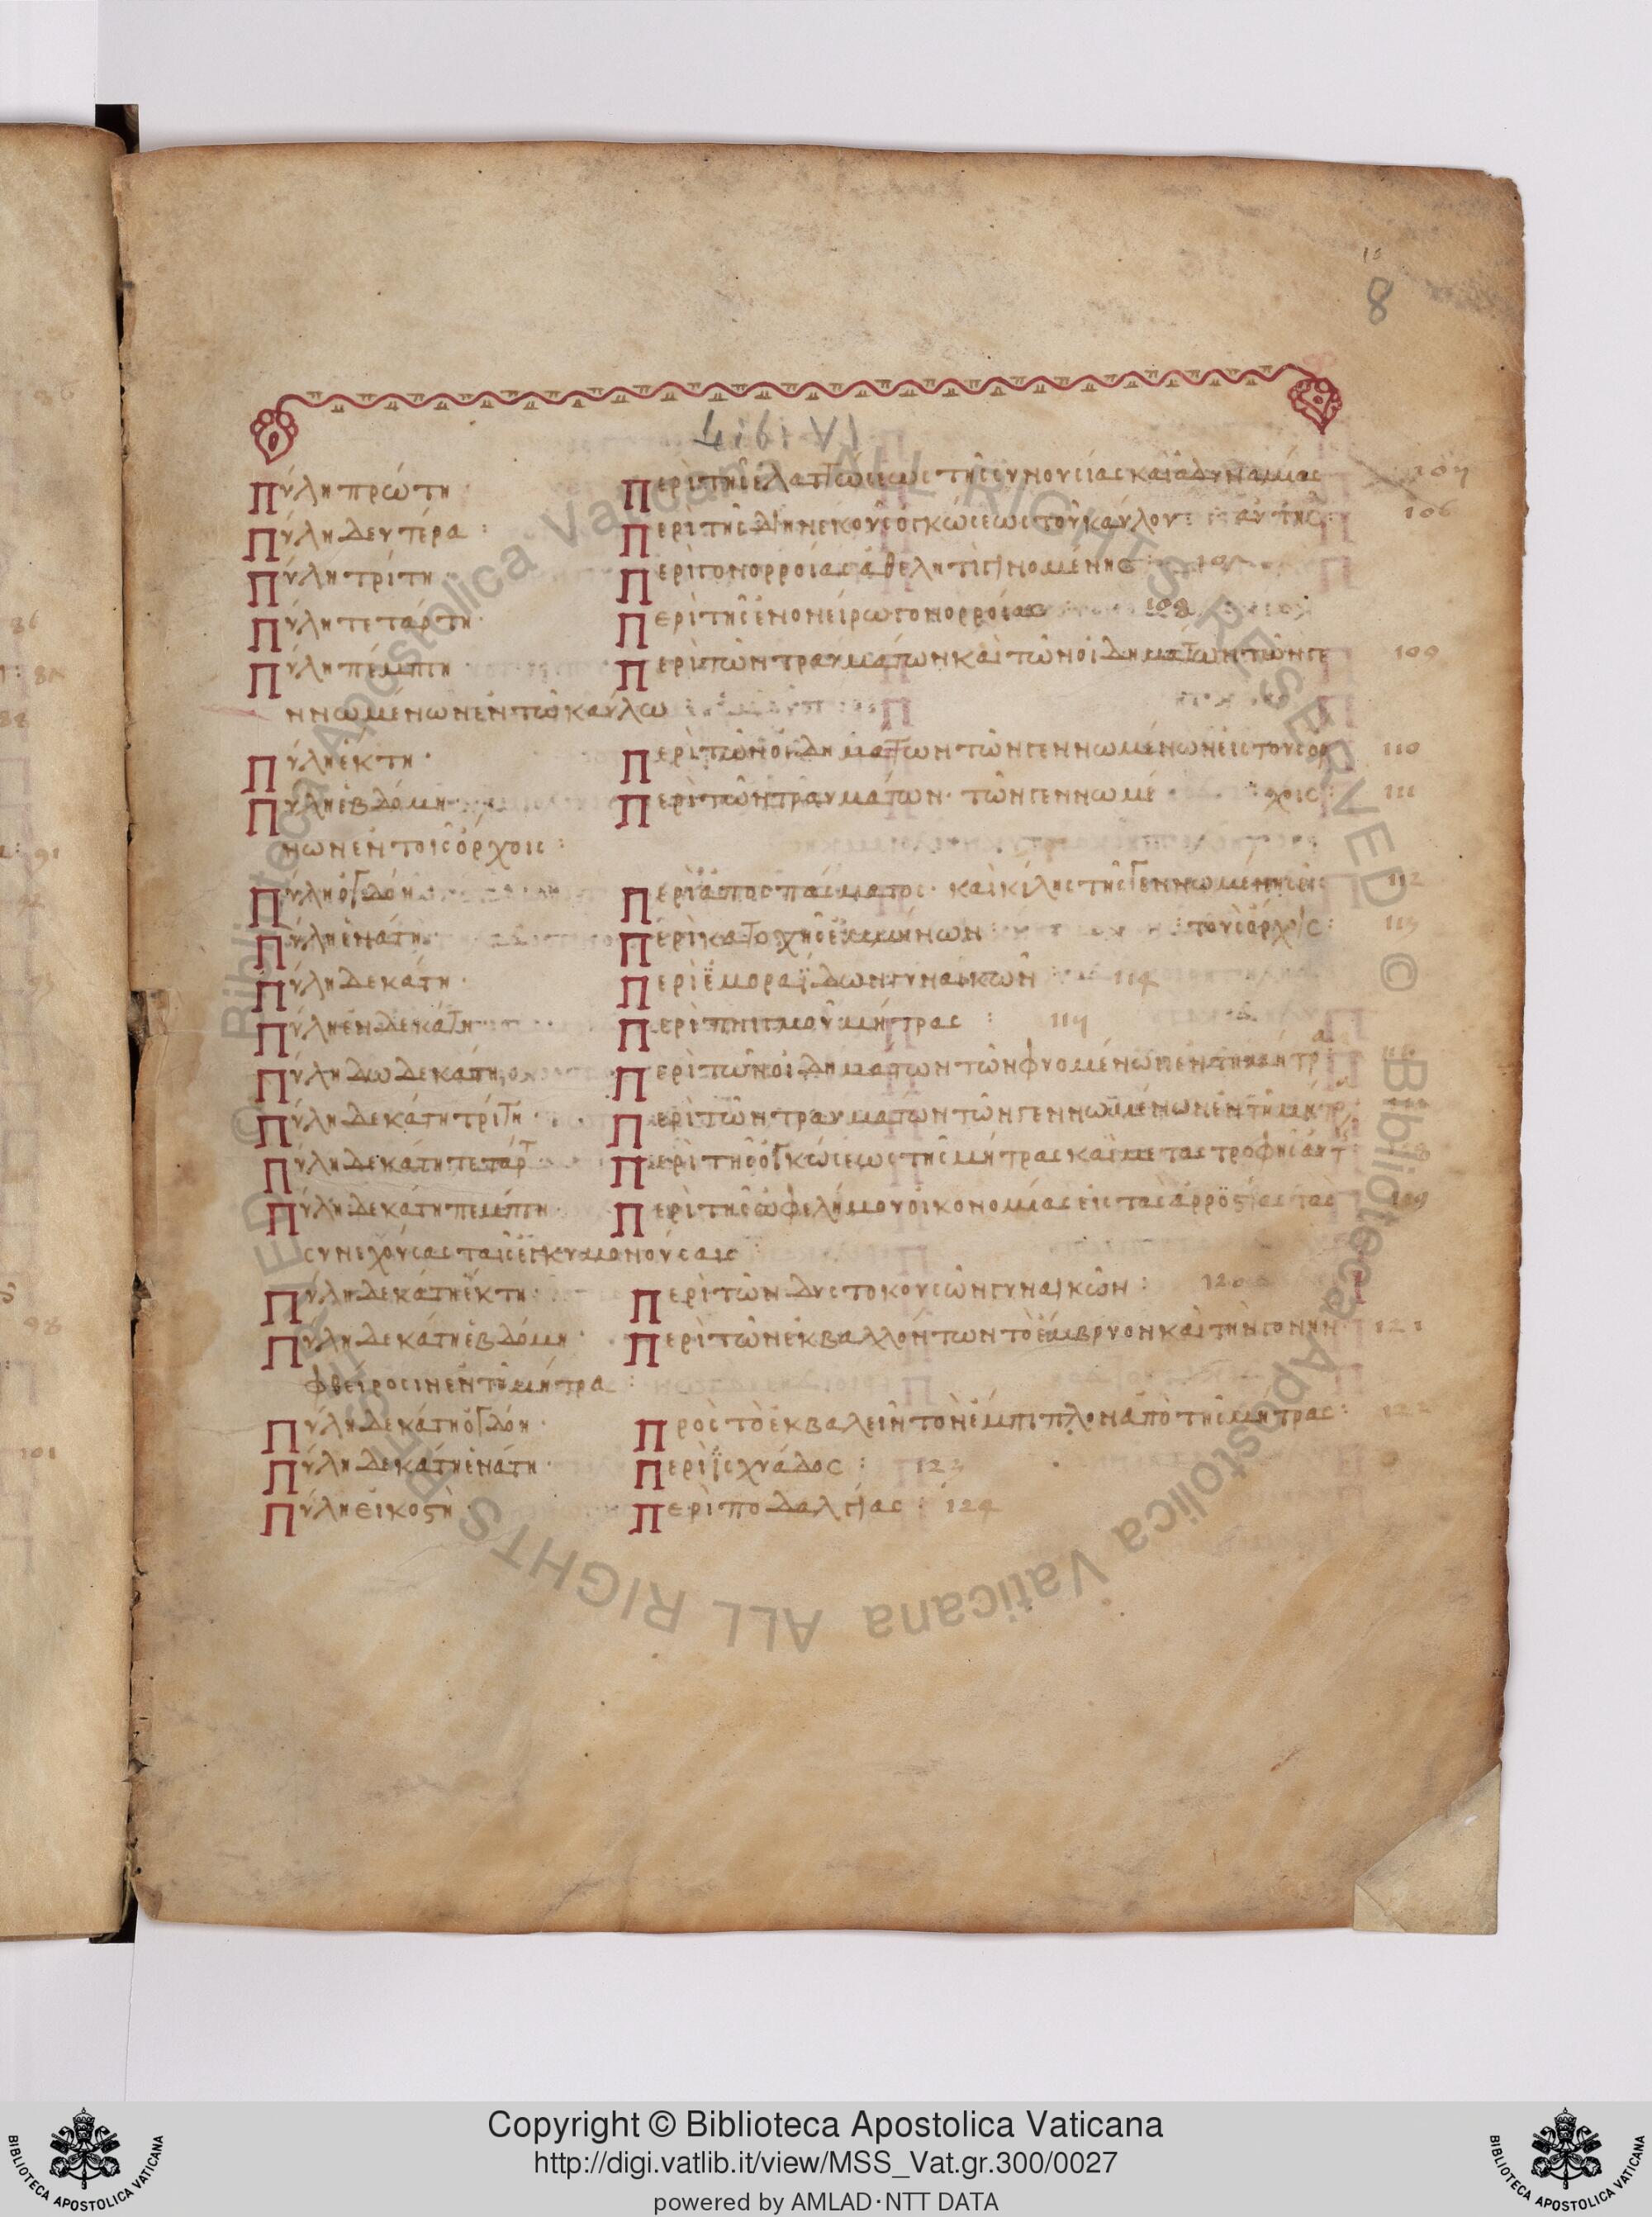 10
8
Libi VI
Πύλη πρώτη · Περὶ τῆς ἐλαττώσεως τῆς συνουσίας καὶ ἀδυναμίας 107
Πύλη δευτέρα : Περὶ τῆς διηνεκοῦς ὀγκώσεως τοῦ καυλοῦ : αὐτῆς : 106
Πύλη τρίτη · Περὶ γονορροίας ἀθελητὶ γινομένης :
Πύλη τετάρτη · Περὶ τῆς ἐν ὀνείρω γονορροίας 108
Πύλη πέμπτη · Περὶ τῶν τραυμάτων καὶ τῶν οἰδημάτων τῶν γε 109
ννωμένων ἐν τῶ καυλω
Πύλη ἕκτη · Περὶ τῶν οἰδημάτων τῶν γεννωμένων εἰς τοὺς ὄρ 110
Πύλη ἑβδόμη · Περὶ τῶν τραυμάτων · τῶν γεννωμέ χοις : 111
νων ἐν τοῖς ὄρχοις :
Πύλη ὀγδόη Περὶ ἀποσπάσματος · καὶ κίλης τῆς γεννωμένης εἰς 112
Πύλη ἐνάτη · Περὶ κατοχῆς ἐμμήνων : τοὺς ὄρχις : 113
Πύλη δεκάτη · Περὶ ἐμοραΐδων γυναικῶν 114
Πύλη ἑνδεκάτη Περὶ πνιγμοῦ μήτρας : 117
Πύλη δωδεκάτη Περὶ τῶν οἰδημάτων τῶν φυομένων ἐν τῆ μήτρα
Πύλη δεκάτη τρίτη · Περὶ τῶν τραυμάτων τῶν γεννωμένων ἐν τῆ μήτρ
Πύλη δεκάτη τετάρτ Περὶ τῆς ὀγκώσεως τῆς μήτρας καὶ μεταστροφῆς αὐτ
Πύλη δεκάτη πέμπτη · Περὶ τῆς ὠφελήμου οἰκονομίας εἰς τὰς ἀρρωστίας τὰς 119
συνεχούσας ταῖς ἐγκυμονούσαις :
Πύλη δεκάτη ἕκτη · Περὶ τῶν δυστοκουσῶν γυναικῶν : 120
Πύλη δεκάτη ἑβδόμη · Περὶ τῶν ἐκβαλλόντων τὸ ἔμβρυον καὶ τὴν γονὴν 121
φθείροσιν ἐν τῆ μήτρα :
Πύλη δεκάτη ὀγδόη · Πρὸς τὸ ἐκβαλεῖν τὸν ἔμπιπλον ἀπὸ τῆς μήτρας : 122
Πύλη δεκάτη ἐνάτη · Περὶ ἰσχυάδος : 123
Πύλη εἰκοστὴ · Περὶ ποδαλγίας : 124
Copyright © Biblioteca Apostolica Vaticana
http://digi.vatlib.it/view/MSS_Vat.gr.300/0027
powered by AMLAD·NTT DATA